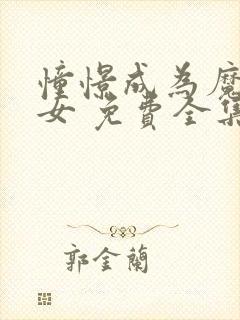 憧憬成為魔
女 免費全集
郭金蘭